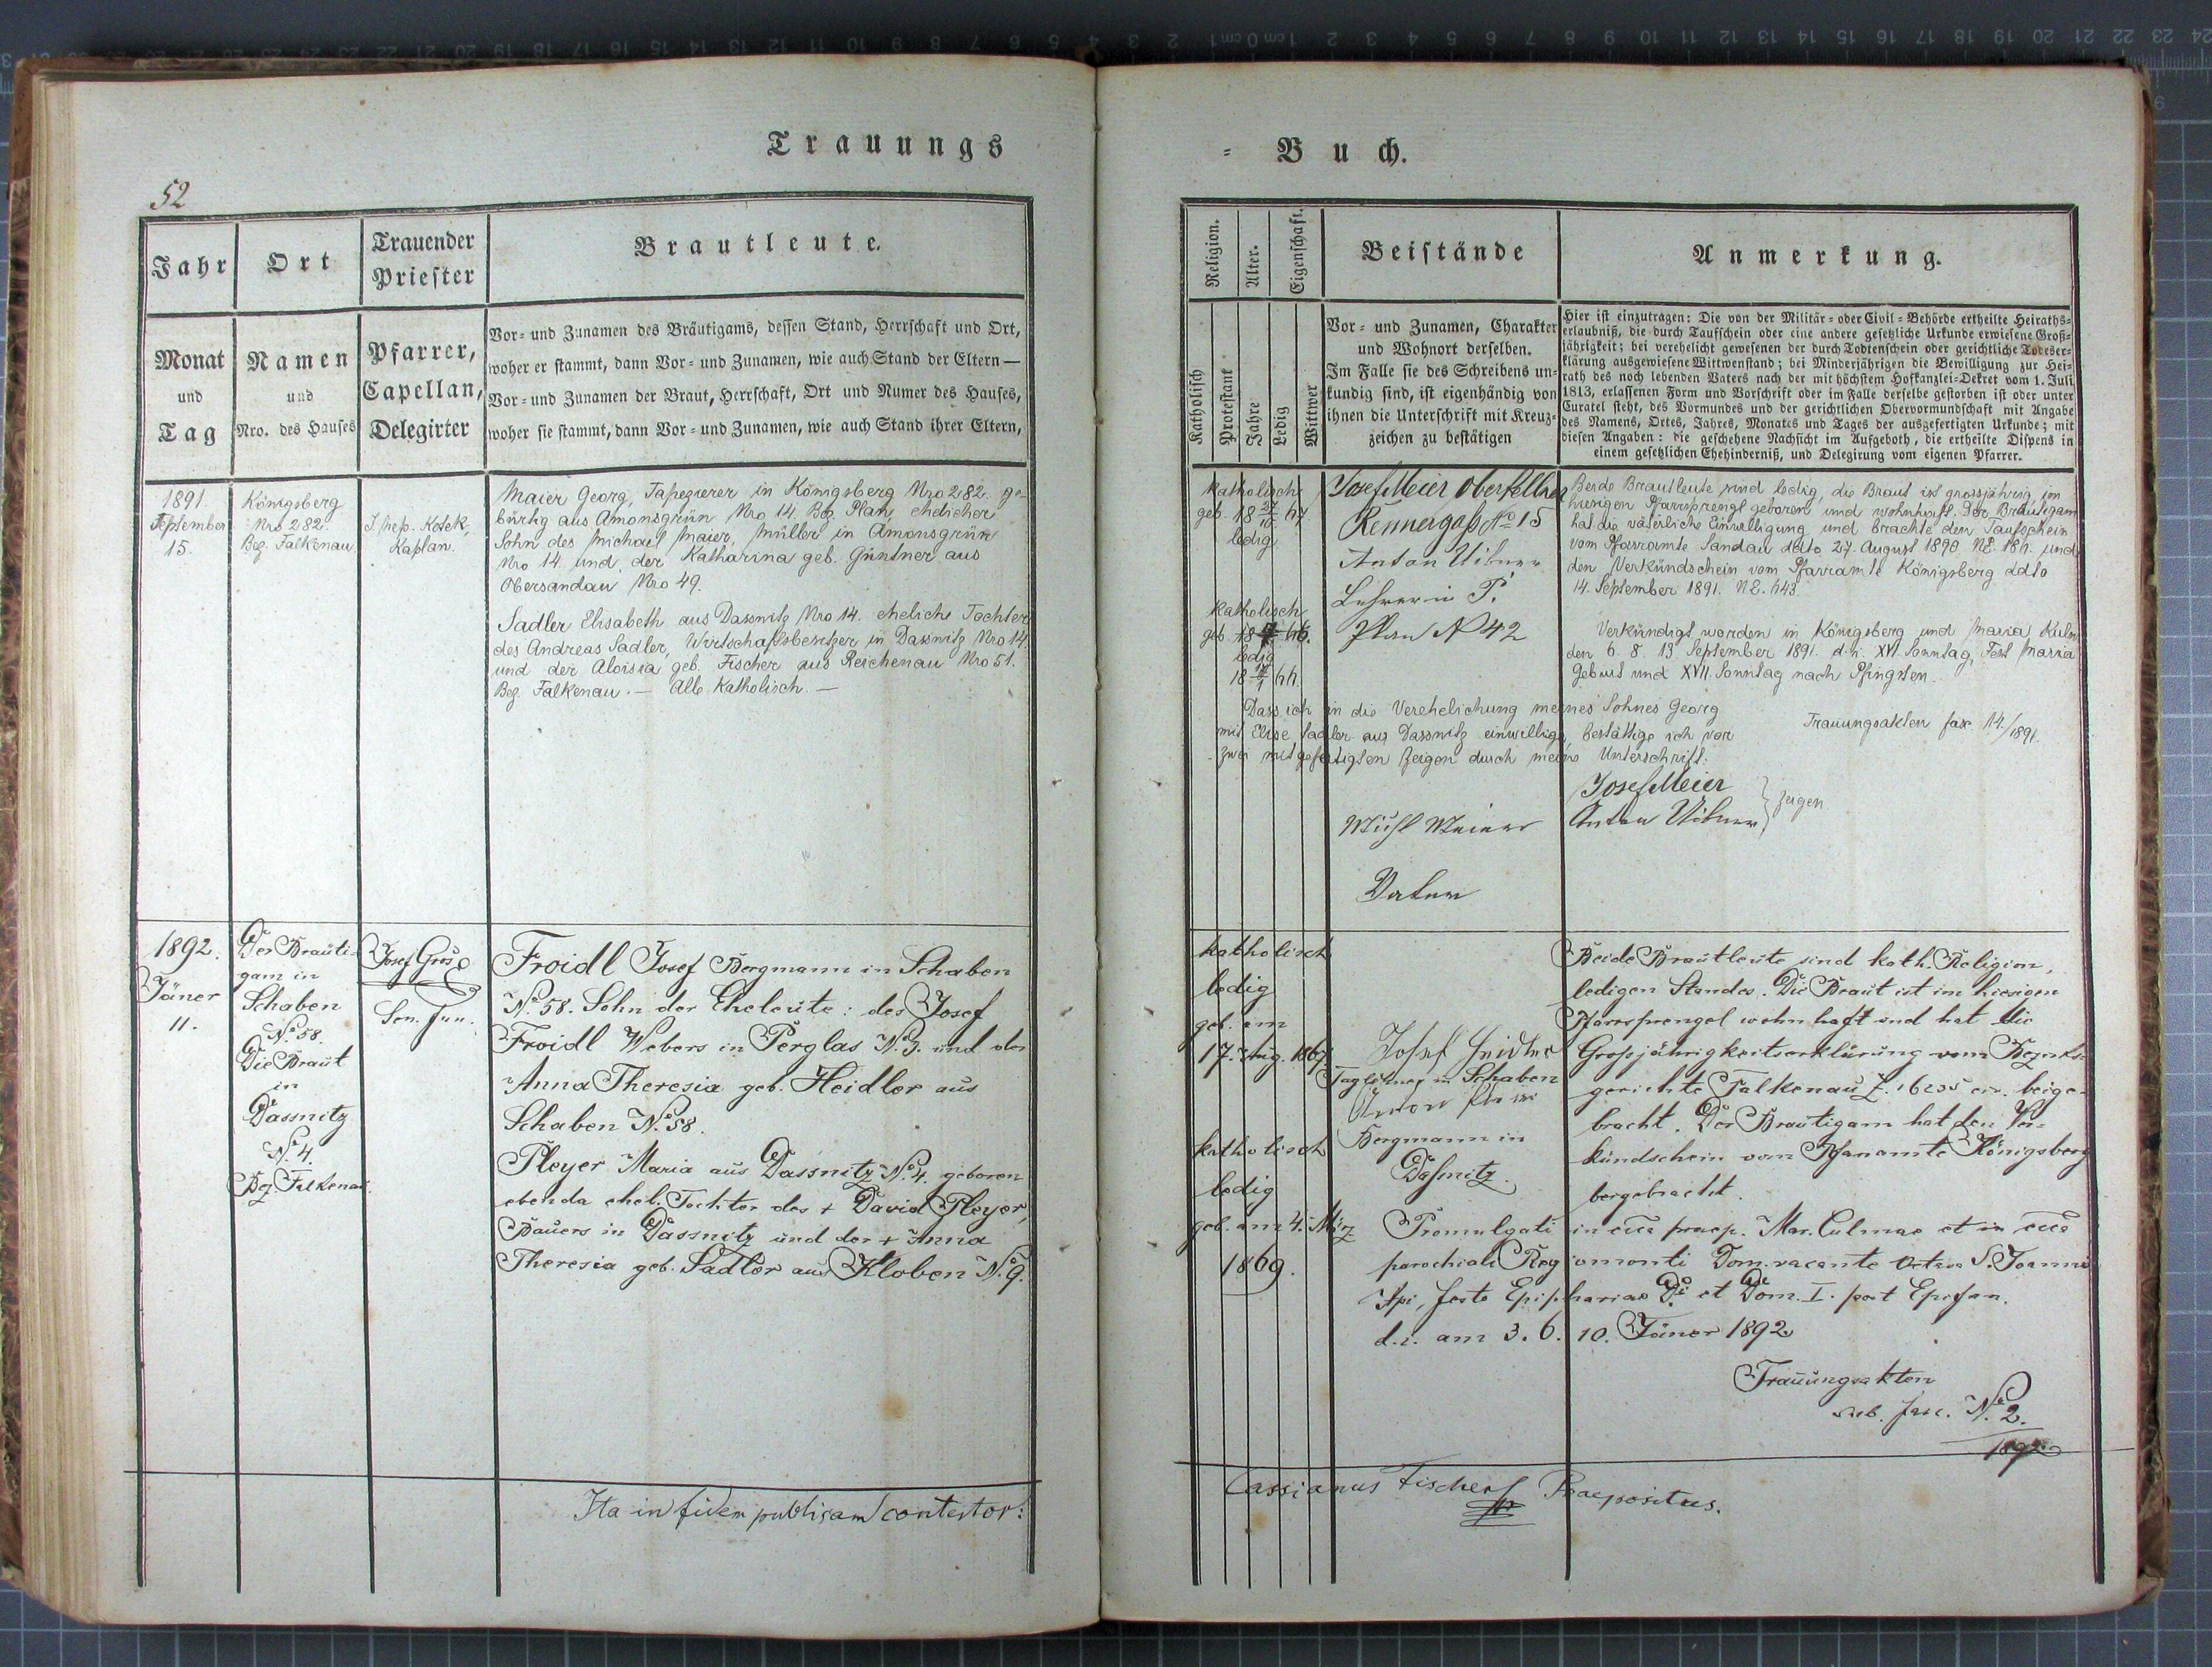 Trauungs
= Buch.
52
Jahr
Ort
Trauender
Priester
Brautleute.
Monat
und
Tag
Namen
und
Nro. des Hauses
Pfarrer,
Capellan,
Delegirter
Vor- und Zunamen des Bräutigams, dessen Stand, Herrschaft und Ort,
woher er stammt, dann Vor- und Zunamen, wie auch Stand der Eltern —
Vor- und Zunamen der Braut, Herrschaft, Ort und Numer des Hauses,
woher sie stammt, dann Vor- und Zunamen, wie auch Stand ihrer Eltern,
Religion.
Alter.
Eigenschaft.
Beistände
Anmerkung.
Katholisch
Protestant
Jahre
Ledig
Wittwer
Vor- und Zunamen, Charakter
und Wohnort derselben.
Im Falle sie des Schreibens un-
kundig sind, ist eigenhändig von
ihnen die Unterschrift mit Kreuz-
zeichen zu bestättigen
Hier ist einzutragen: Die von der Militär- oder Civil-Behörde ertheilte Heiraths-
erlaubniß, die durch Taufschein oder eine andere gesetzliche Urkunde erwiesene Groß-
jährigkeit; bei verehelicht gewesenen der durch Todtenschein oder gerichtliche Todeser-
klärung ausgewiesene Wittwenstand; bei Minderjährigen die Bewilligung zur Hei-
rath des noch lebenden Vaters nach der mit höchstem Hofkanzlei-Dekret vom 1. Juli
1813, erlassenen Form und Vorschrift oder im Falle derselbe gestorben ist oder unter
Curatel steht, des Vormundes und der gerichtlichen Obervormundschaft mit Angabe
des Namens, Ortes, Jahres, Monates und Tages der ausgefertigten Urkunde; mit
diesen Angaben: die geschehene Nachsicht im Aufgeboth, die ertheilte Dispens in
einem gesetzlichen Ehehinderniß, und Delegirung vom eigenen Pfarrer.
1891.
September
15.
Königsberg
Nro 282.
Bez. Falkenau
Kotek,
Kaplan.
Maier Georg, Tapezierer in Königsberg Nro 282. ge-
bürtig aus Amonsgrün Nro 14. Bez. Plan, ehelicher
Sohn des Michael Maier, Müller in Amonsgrün
Nro 14. und der Katharina geb. Güntner aus
Obersandau Nro 49.
Sadler Elisabeth aus Dassnitz Nro 14. eheliche Tochter
des Andreas Sadler, Wirtschaftsbesitzer in Dassnitz Nro 14.
und der Aloisia geb. Fischer aus Reichenau Nro 51.
Bez. Falkenau. — Alle Katholisch. —
katholisch
geb. 18 67
ledig
katholisch
geb. 66.
ledig
18 66.
Josef Meier Oberkellner
Rennergaß No 15
Anton
Lehrer in P.
Plan No 42
Beide Brautleute sind ledig, die Braut ist grossjährig, im
hierigen Pfarrsprengl geboren und wohnhaft. Der Bräutigam
hat die väterliche Einwilligung und brachte den Taufschein
vom Pfarramte Sandau ddto 27. August 1890. NE. 186. und
den Verkündschein vom Pfarramte Königsberg ddto
14. September 1891. NE. 643.
Verkündigt worden in Königsberg und Maria Kulm
den 6. 8. 13. September 1891. d. i. XVI. Sonntag, Fest Maria
Geburt und XVII. Sonntag nach Pfingsten.
Dass ich in die Verehelichung meines Sohnes Georg
mit Elise Sadler aus Dassnitz einwillige, bestättige ich vor
zwei mitgefertigten Zeigen durch meine Unterschrift:
Trauungsakten fasc 14/1891.
Josef Meier
Anton
Zeigen
Michl Meier
Vater
1892.
Jäner
11.
Der Bräuti-
gam in
Schaben
No 58.
Die Braut
in
Dassnitz
No 4.
Bez. Falkenau.
Josef Gros
Froidl Josef Bergmann in Schaben
No 58. Sohn der Eheleute: des Josef
Froidl Webers in Perglas No 3. und der
Anna Theresia geb. Heidler aus
Schaben No 58.
Pleyer Maria aus Dassnitz No 4. geboren
ebenda ehel. Tochter des + David Pleyer,
Bauers in Dassnitz und der + Anna
Theresia geb. Sadler aus Kloben No 9.
katholisch
ledig
geb. am
17. Aug. 1867
katholisch
ledig
geb. am 4. März
1869.
Josef Heidler
Taglöhner in Schaben
Anton
Bergmann in
Daßnitz.
Beide Brautleute sind kath. Religion,
ledigen Standes. Die Braut ist im hiesigen
Pfarrsprengel wohnhaft und hat die
Großjährigkeitserklärung vom Bezirks-
gerichte Falkenau Z. 16235 civ. beige-
bracht. Der Bräutigam hat den Ver-
kündschein vom Pfarramte Königsberg
beigebracht.
Promulgati in praep. Mar. Culmae et in
parochiali Regiomonti Dom. vacante Octava S. Joannis
Api, festo Epiphaniae Di et Dom. I. post Epifan.
d. i. am 3. 6. 10. Jäner 1892
Trauungsakten
sub. fasc. No 2.
1892
Ita in fidem publicam contestor:
Cassianus Fischer Praepositus.